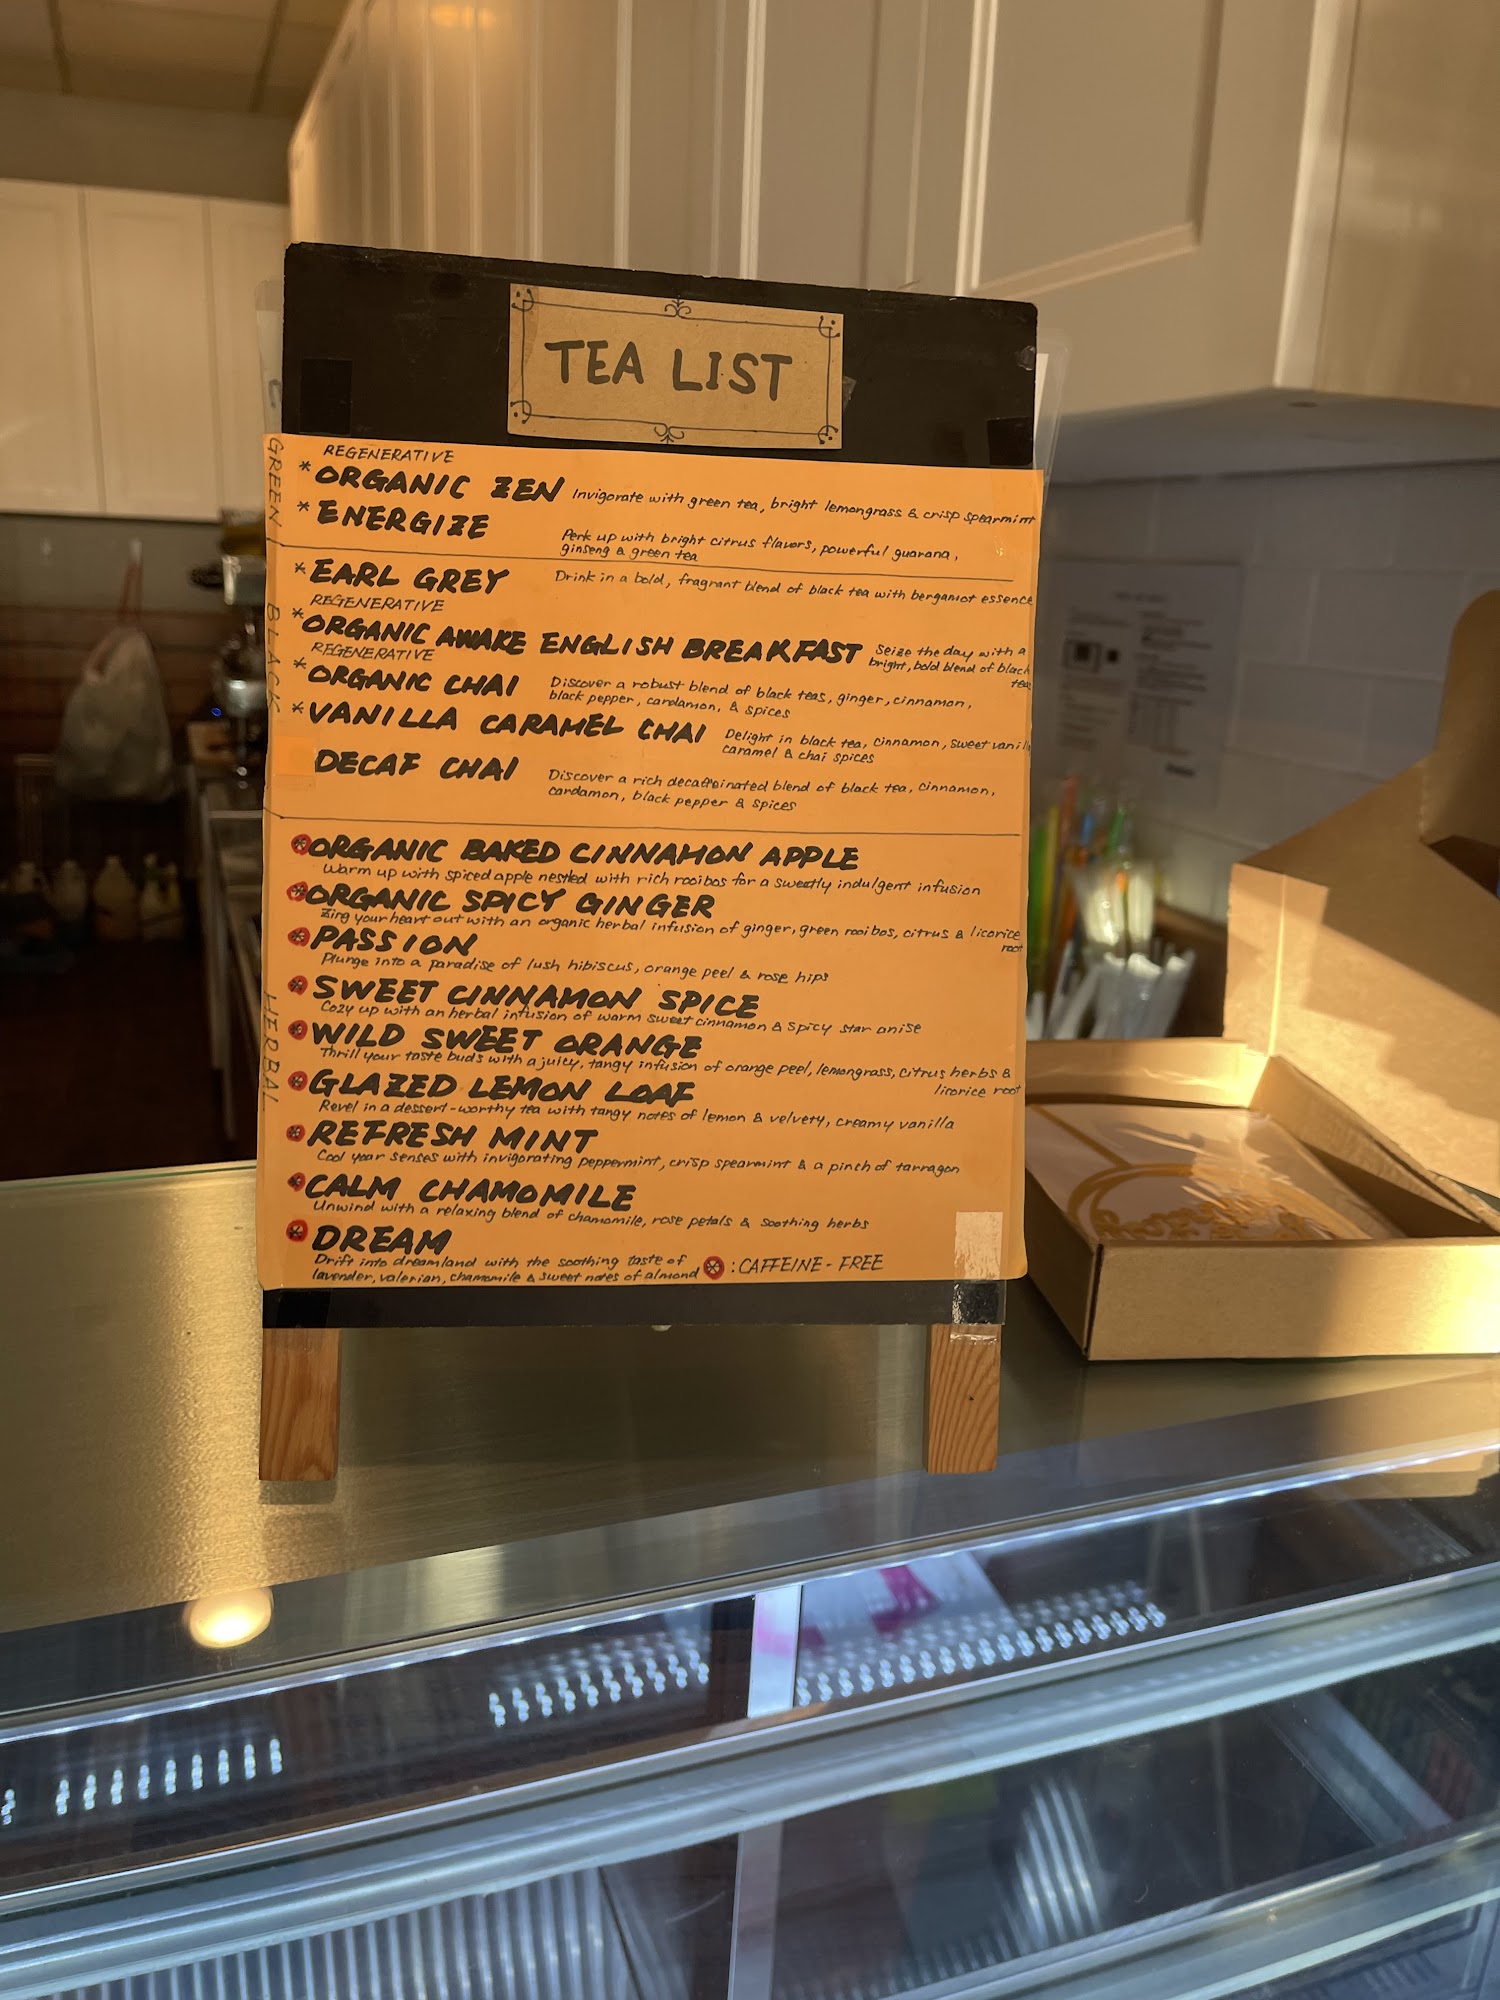 TEA LIST
GREEN
REGENERATIVE
* ORGANIC ZEN Invigorate with green tea, bright lemongrass & crisp spearmint
* ENERGIZE Perk up with bright citrus flavors, powerful guarana,
ginseng & green tea
BLACK
* EARL GREY Drink in a bold, fragrant blend of black tea with bergamot essence
REGENERATIVE
* ORGANIC AWAKE ENGLISH BREAKFAST Seize the day with a
bright, bold blend of black
teas
REGENERATIVE
* ORGANIC CHAI Discover a robust blend of black teas, ginger, cinnamon,
black pepper, cardamon, & spices
* VANILLA CARAMEL CHAI Delight in black tea, cinnamon, sweet vanilla
caramel & chai spices
DECAF CHAI Discover a rich decaffeinated blend of black tea, cinnamon,
cardamon, black pepper & spices
HERBAL
* ORGANIC BAKED CINNAMON APPLE
Warm up with spiced apple nestled with rich rooibos for a sweetly indulgent infusion
* ORGANIC SPICY GINGER
Zing your heart out with an organic herbal infusion of ginger, green rooibos, citrus & licorice
root
* PASSION
Plunge into a paradise of lush hibiscus, orange peel & rose hips
* SWEET CINNAMON SPICE
Cozy up with an herbal infusion of warm sweet cinnamon & spicy star anise
* WILD SWEET ORANGE
Thrill your taste buds with a juicy, tangy infusion of orange peel, lemongrass, citrus herbs &
licorice root
* GLAZED LEMON LOAF
Revel in a dessert-worthy tea with tangy notes of lemon & velvety, creamy vanilla
* REFRESH MINT
Cool your senses with invigorating peppermint, crisp spearmint & a pinch of tarragon
* CALM CHAMOMILE
Unwind with a relaxing blend of chamomile, rose petals & soothing herbs
* DREAM
Drift into dreamland with the soothing taste of
lavender, valerian, chamomile & sweet notes of almond
* : CAFFEINE-FREE